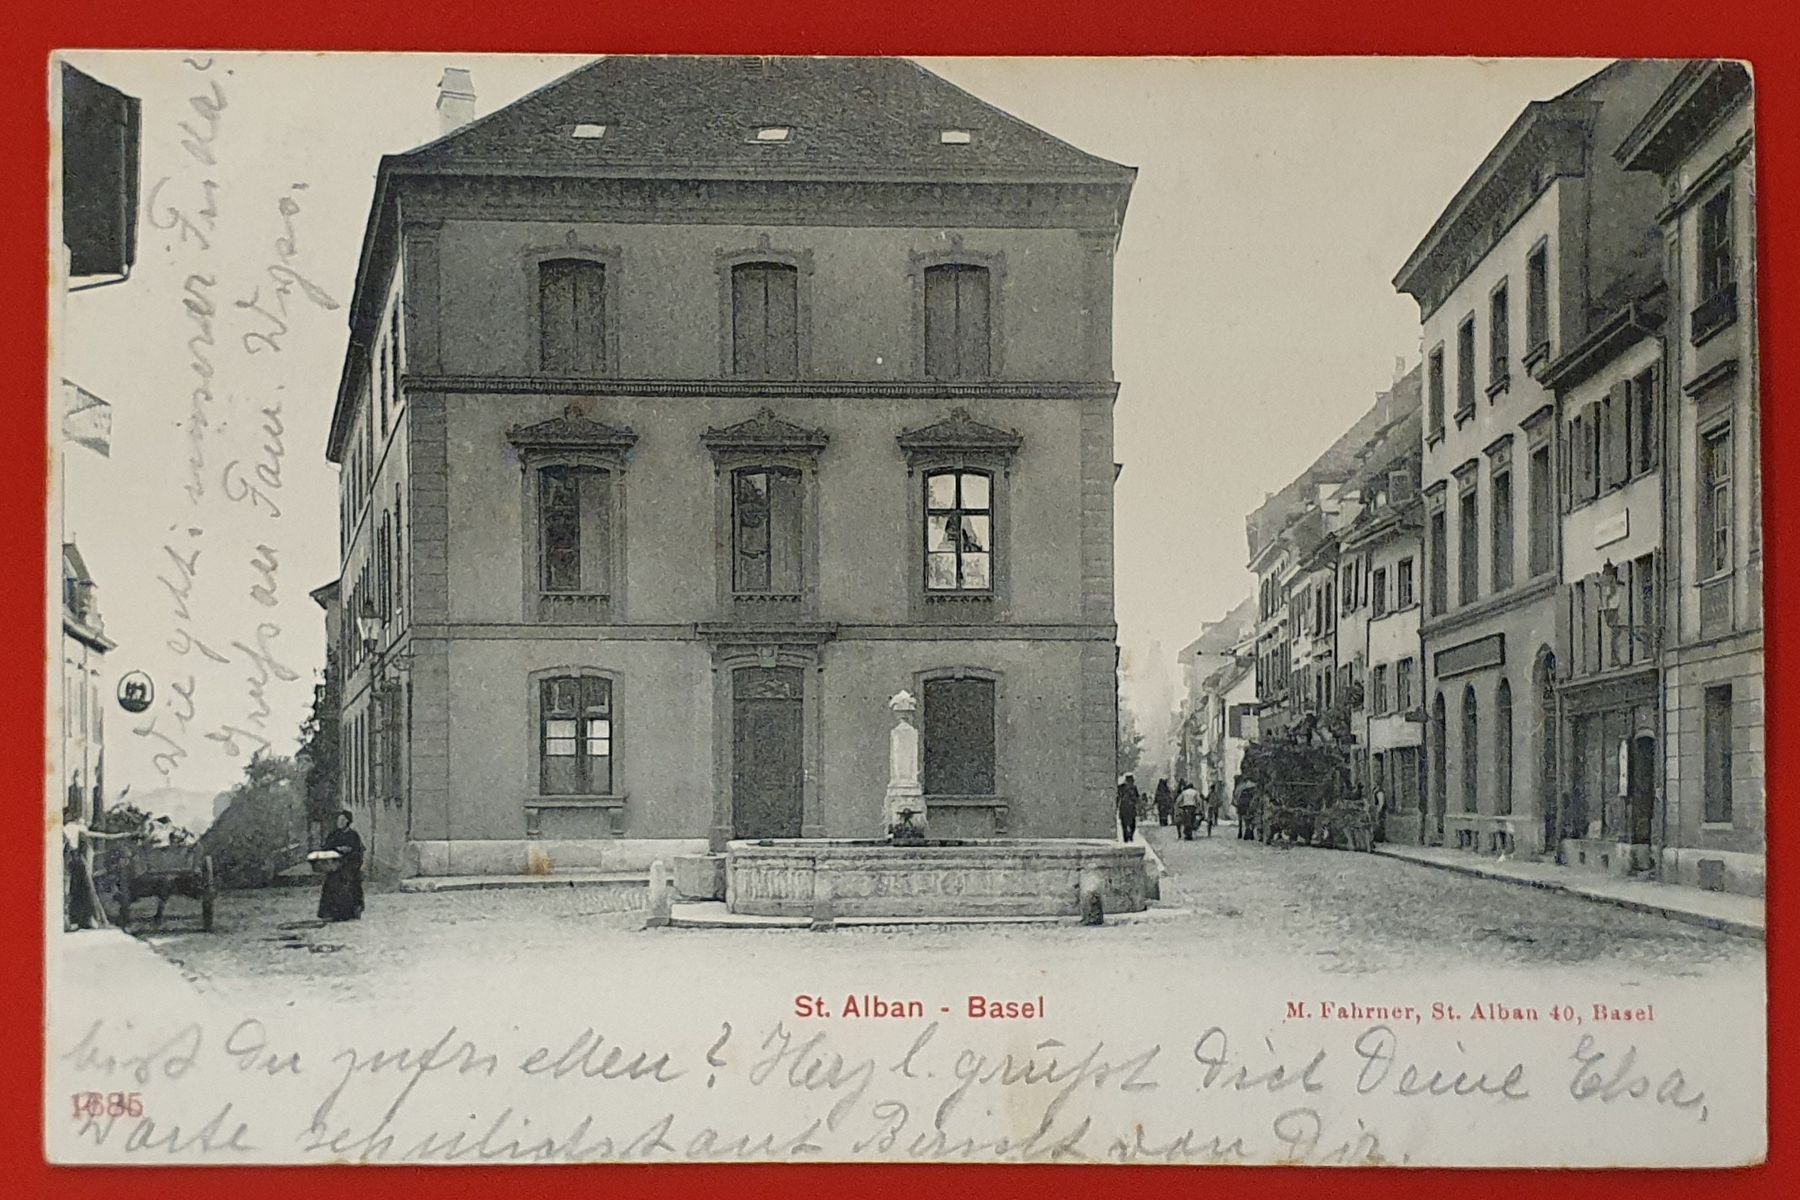 Wie geht's unserer Frida?
Gruss an Fam. Wyss.
St. Alban - Basel
M. Fahrner, St. Alban 40, Basel
bist Du zufrieden? Herzl. grüßt Dich Deine Elsa,
1685
Warte sehnlichst auf Bericht von Dir.